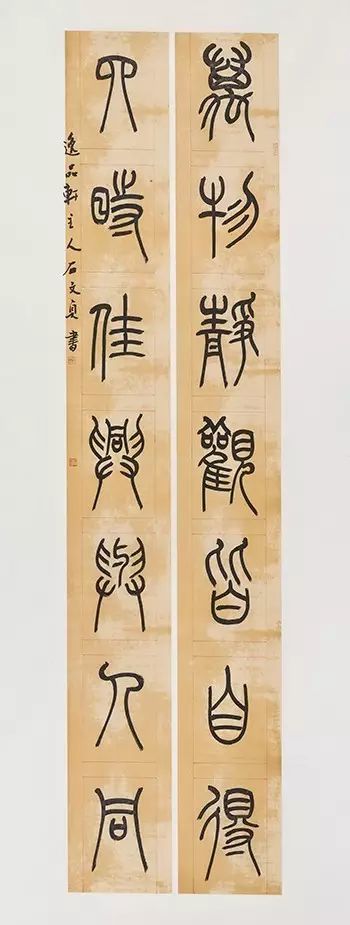 萬物靜觀皆自得
四時佳興與人同
逸品軒主人石文貞書